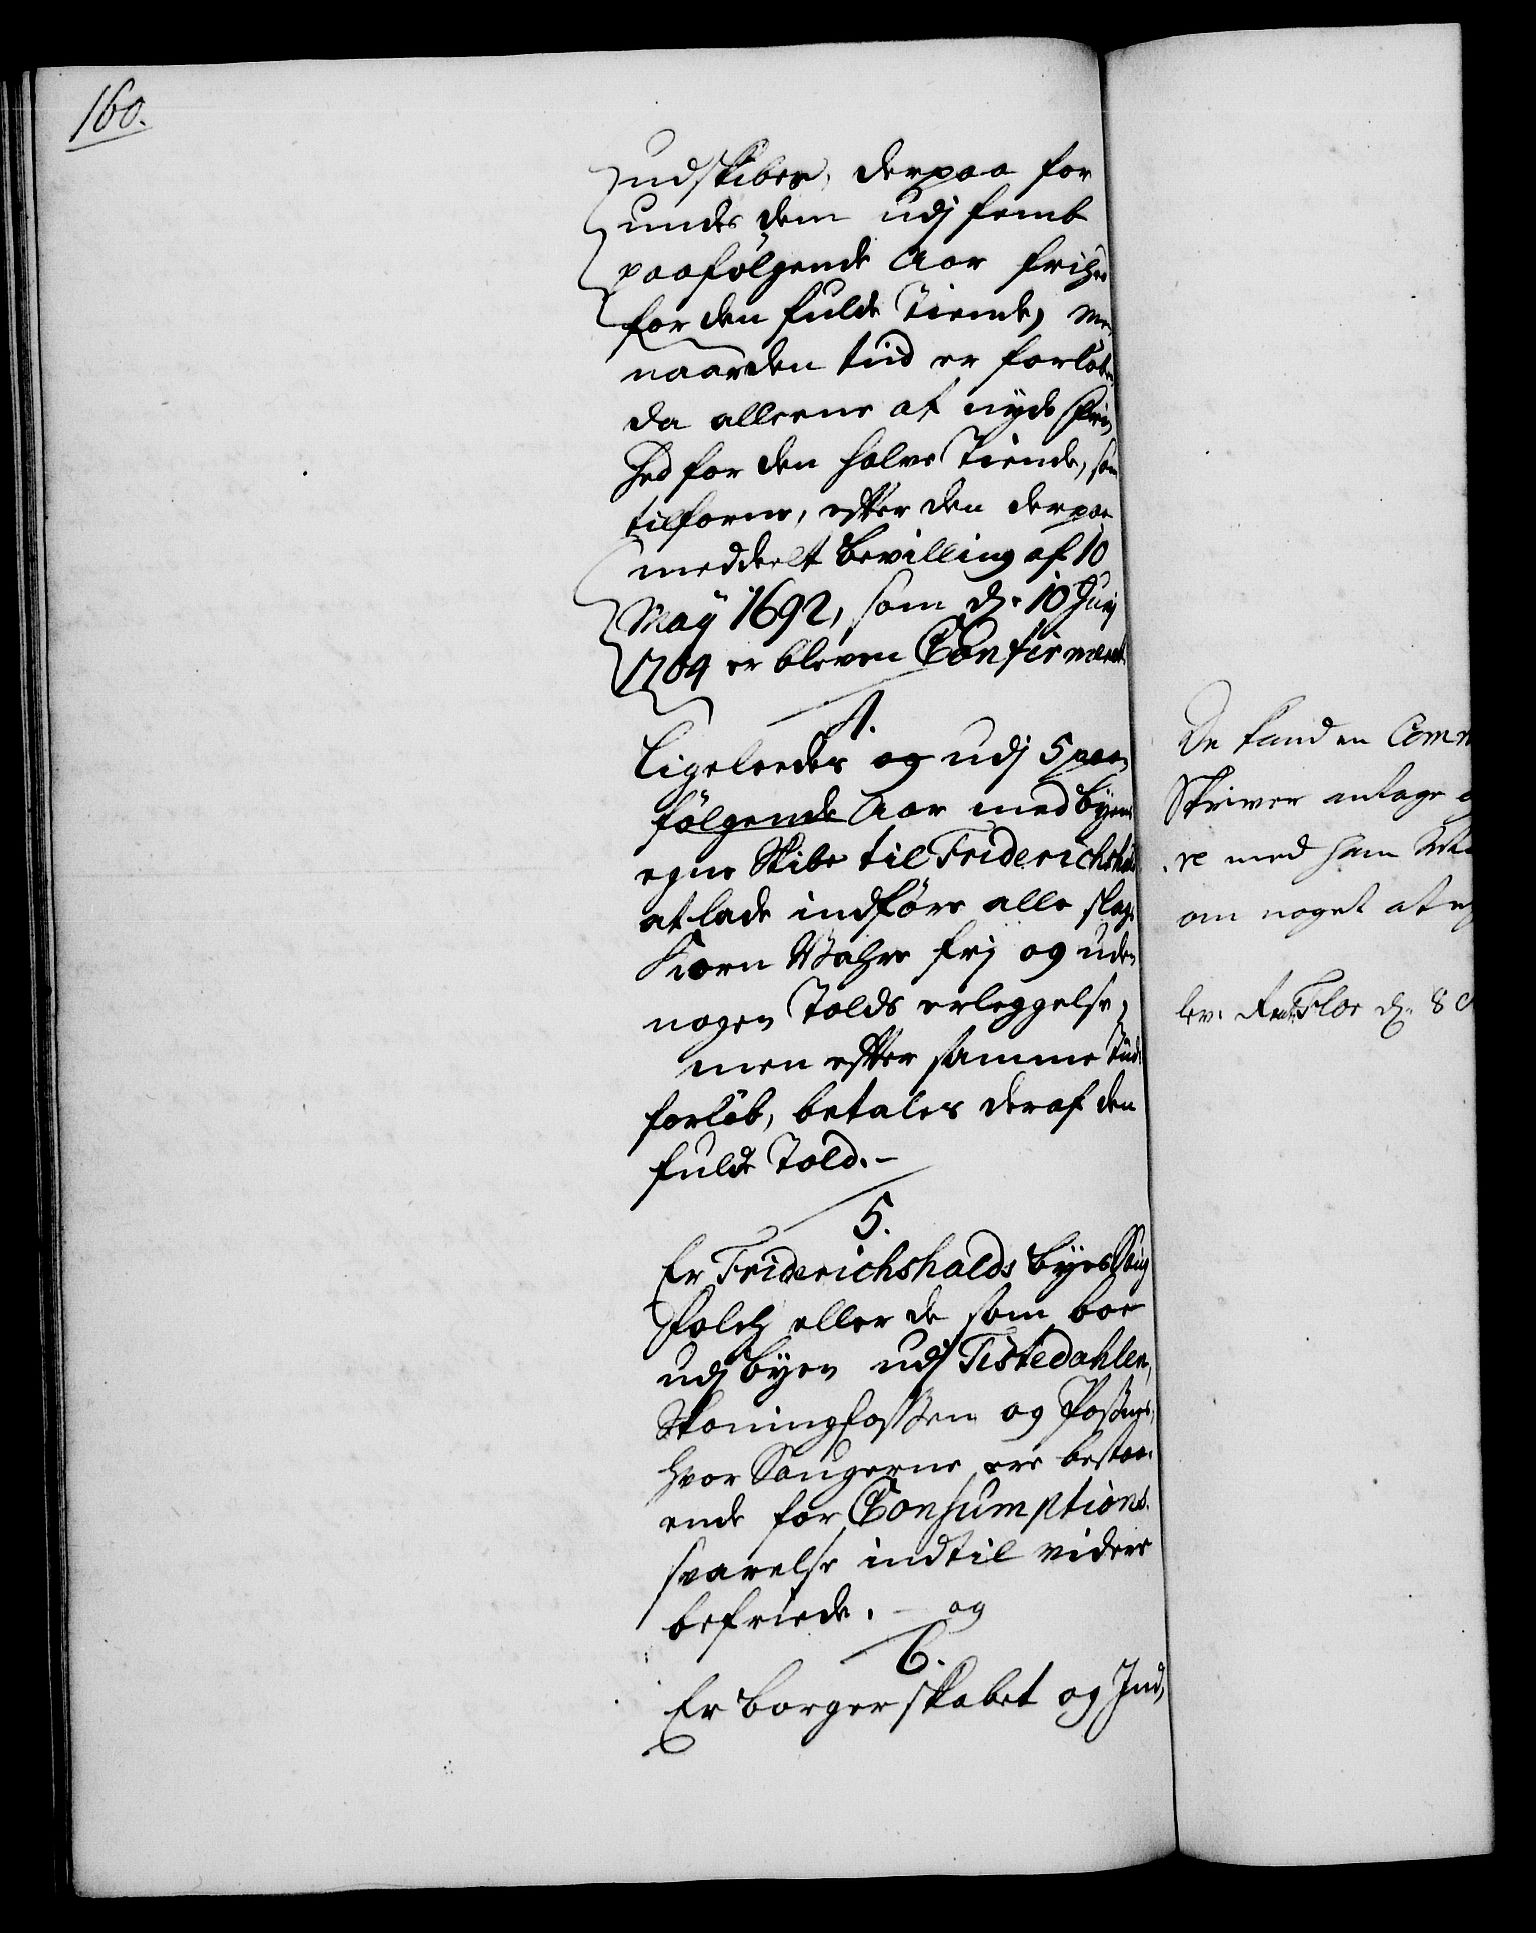 160.
udskiber, derpaa for
undes dem udj femb
paafölgende Aar friehed
for den fulde Tiende, men
naar den tiid er forløben
da alleene at nyde frie
hed for den halve Tiende, som
tilforne, efter den derpaa
meddeelt bevilling af 10
Maÿ 1692, som d. 10 Junj
1704 er bleven Confirmeret
4.
Ligeleedes og udj 5 paa
fölgende Aar med byens
egne Skibe til Friderichshald
at lade indføre alle slags
Korn Wahre frj og uden
nogen Tolds erleggelse,
men efter samme Tiids
forløb, betales deraf den
fulde Told.
5.
Er Friderichshalds byes Saug
folch eller de som boe
udj byen udj Tistedahlen,
Skoningfossen og
hvor Saugerne ere bestaa-
ende for Consumptions
svarelse indtil videre
befriede. og
6.
Er borgerskabet og Ind,
De kand en Comm
Skriver antage
re med ham
om noget at
lev. d. 8